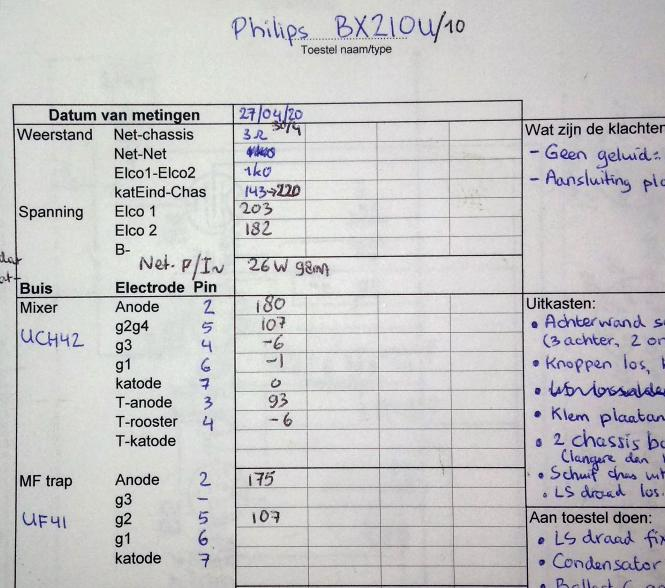 Philips BX210U/10
Toestel naam/type
Datum van metingen 27/04/20
Weerstand Net-chassis 3Ω 30/4
Net-Net
Elco1-Elco2 1k0
katEind-Chas 143→220
Spanning Elco 1 203
Elco 2 182
B-
Net. P/In 26W 98mA
Buis Electrode Pin
Mixer Anode 2 180
UCH42 g2g4 5 107
g3 4 -6
g1 6 -1
katode 7 0
T-anode 3 93
T-rooster 4 -6
T-katode
MF trap Anode 2 175
g3 -
UF41 g2 5 107
g1 6
katode 7
Wat zijn de klachten
- Geen geluid:
- Aansluiting pla
Uitkasten:
• Achterwand s
(3 achter, 2 on
• Knoppen los,
• Klem plaatan
• 2 chassis bo
(langere dan
• Schuif chas uit
• LS draad los.
Aan toestel doen:
• LS draad fix
• Condensator